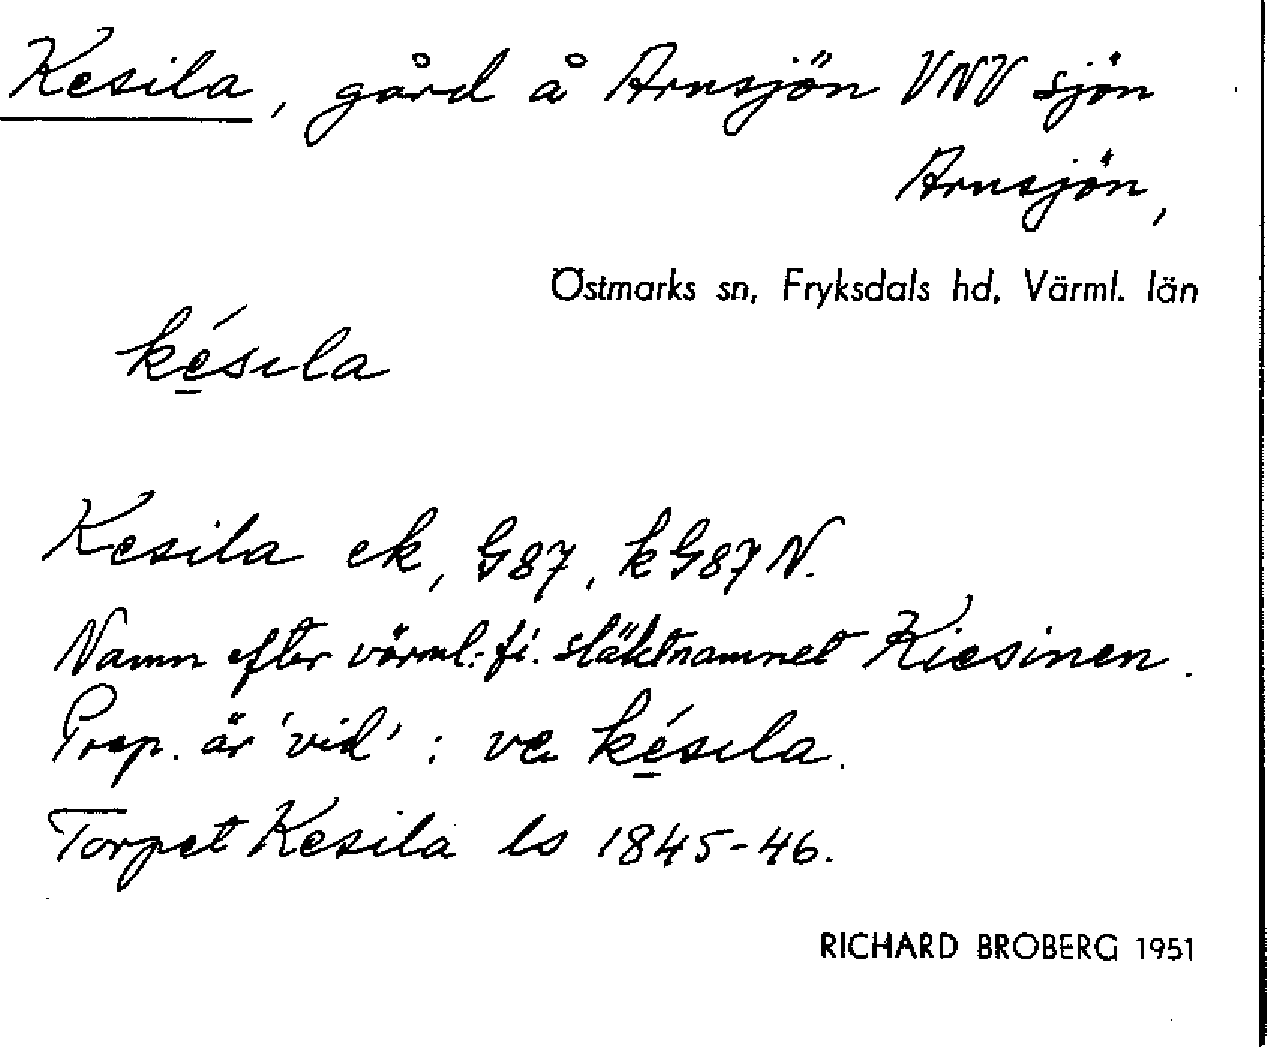 Kesila, gård å Arnsjön VNV sjön
Arnsjön,
Östmarks sn, Fryksdals hd, Värml. län
késıla
Kesila ek, G87, kG87N.
Namn efter värml.-fi. släktnamnet Kiesinen.
Prep. är 'vid' : ve késıla.
Torpet Kesila ls 1845-46.
RICHARD BROBERG 1951